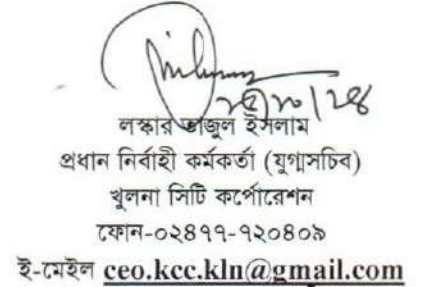 ২৫/১০/২৪
লস্কার তাজুল ইসলাম
প্রধান নির্বাহী কর্মকর্তা (যুগ্মসচিব)
খুলনা সিটি কর্পোরেশন
ফোন-০২৪৭৭-৭২০৪০৯
ই-মেইল ceo.kcc.kln@gmail.com